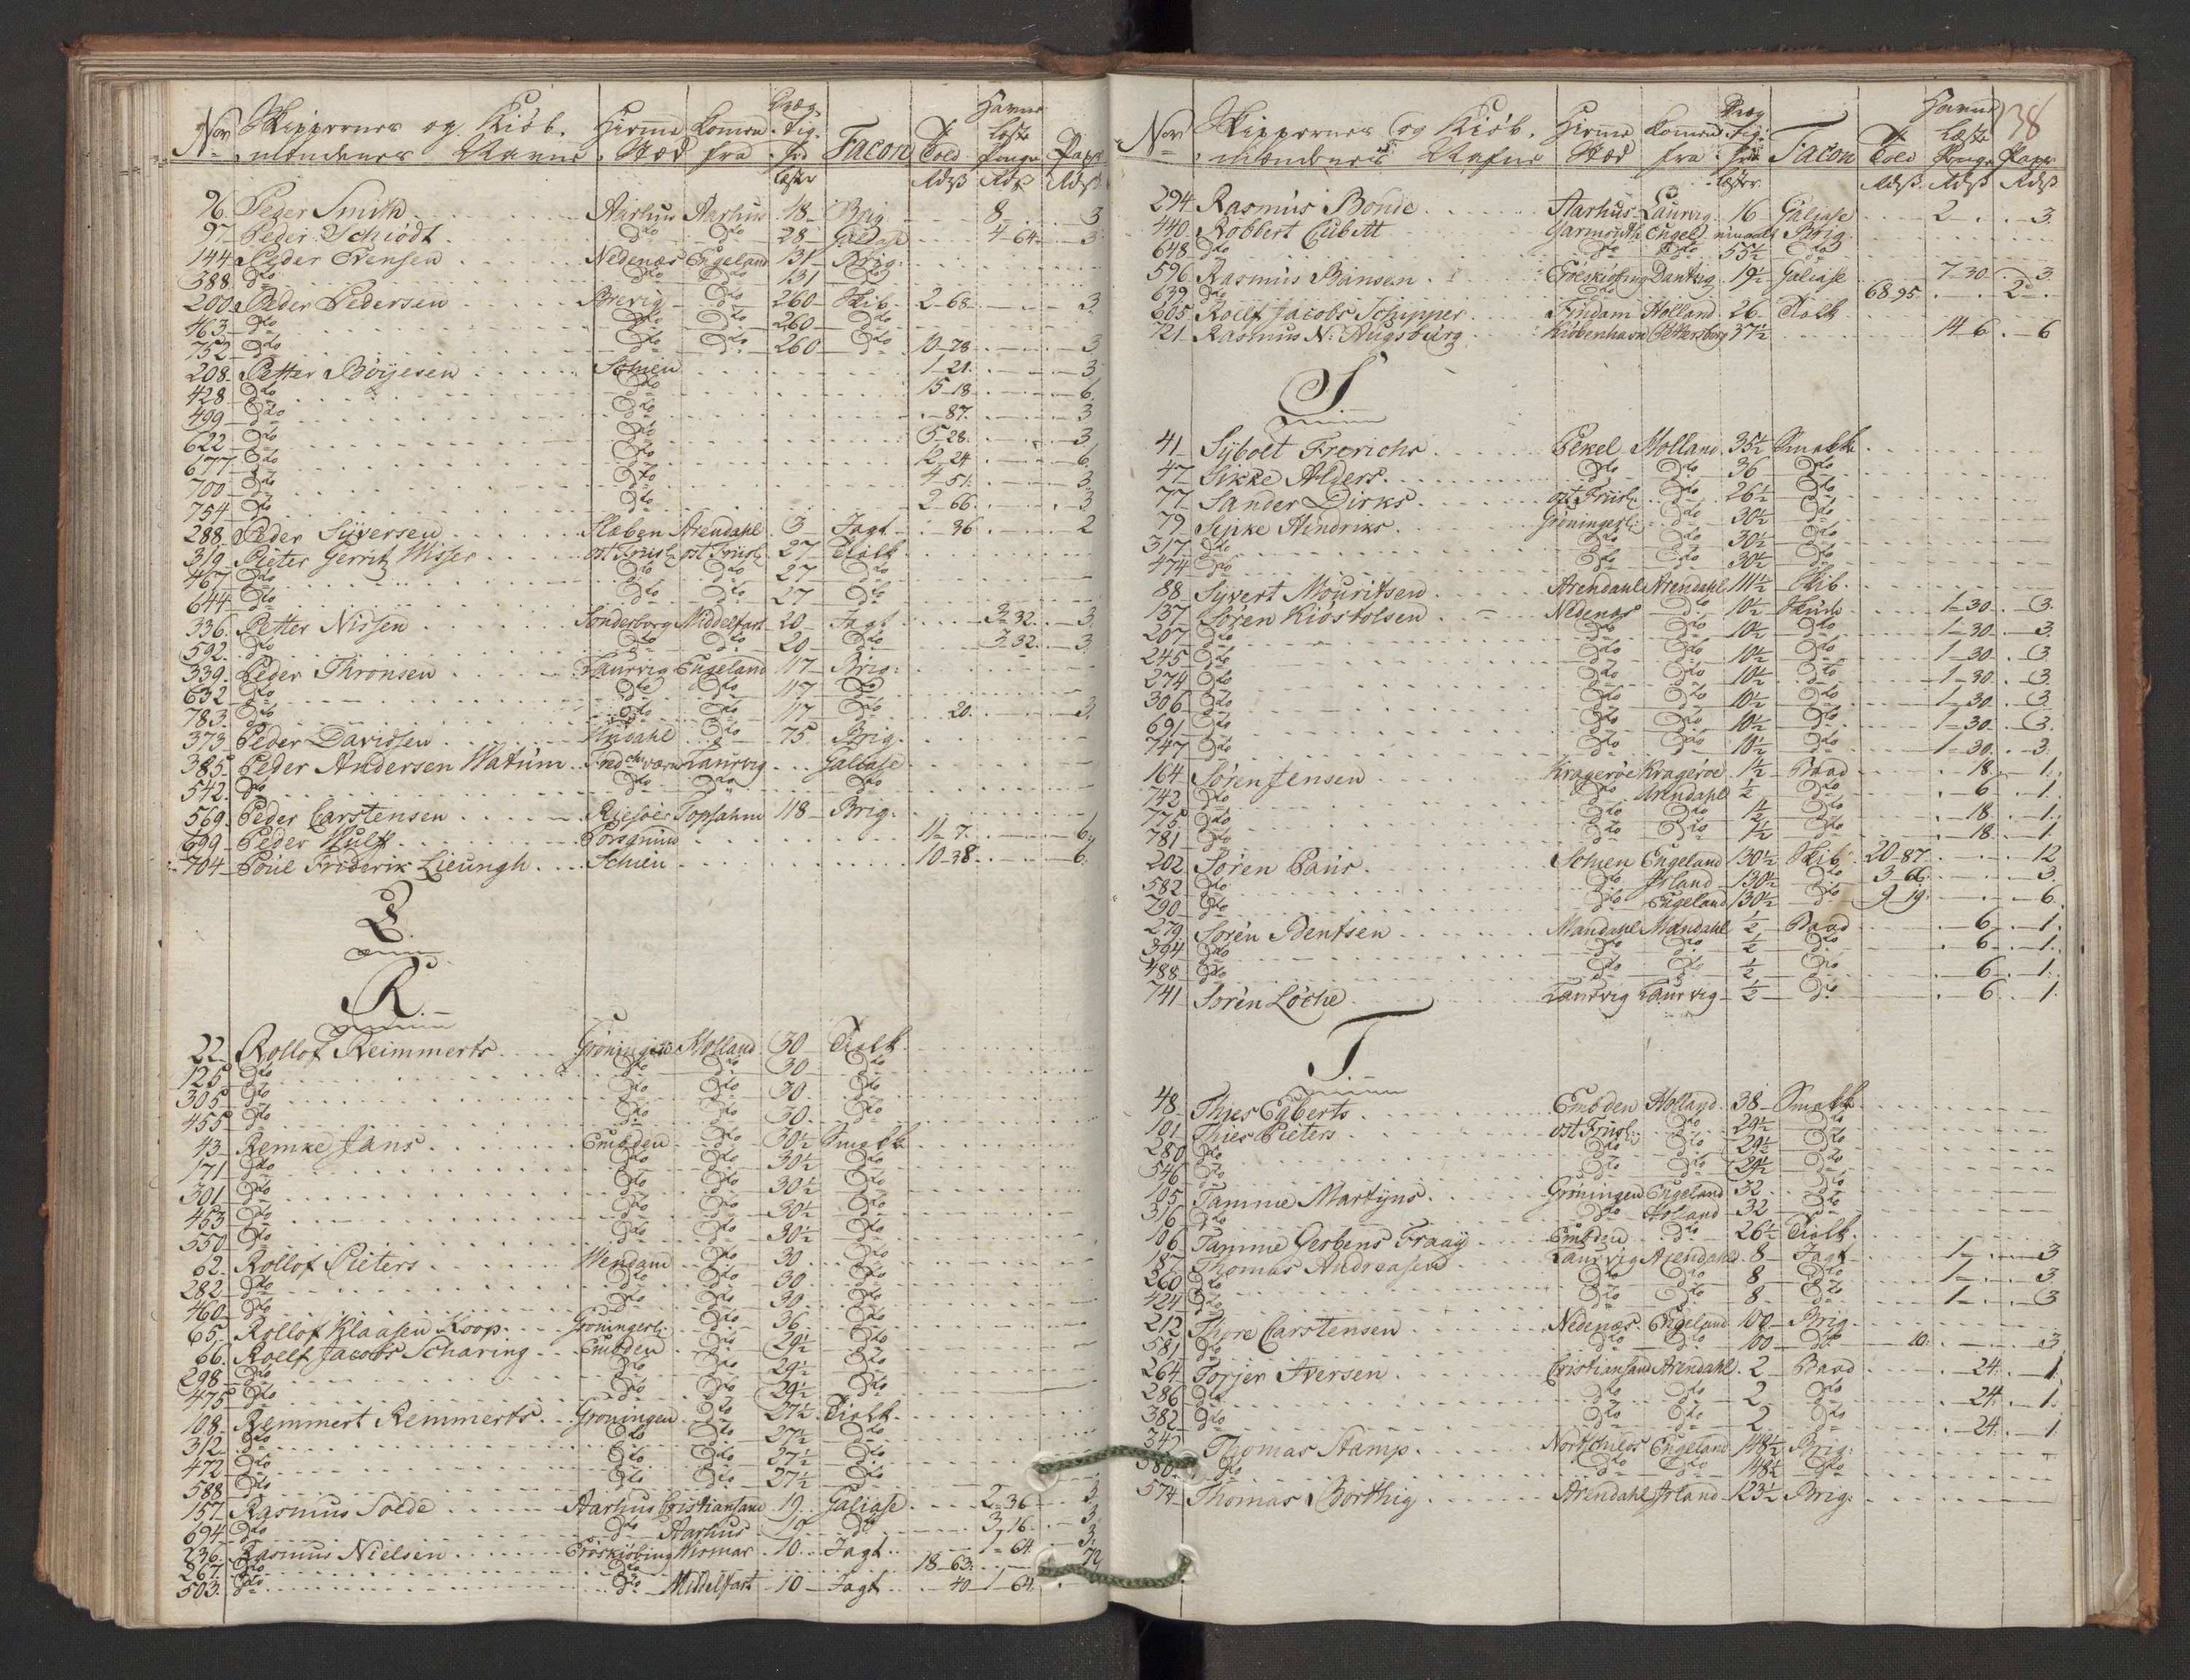 No Skippernes og Kiöb- Hiemme Komen Dræg- Facon Told Havne Papir
mændenes Navne Stæd fra tig- læste
hed Penge
Læster Rd ß Rd ß Rd ß
96 Peder Smith Aarhus Aarhus 18 Brig 8 3
97 Peder Schiödt Do Do 28 Galiase 4 64 3
144 Peder Evensen Nedenæs Engeland 131 Brig
388 Do Do Do 131 Do
200 Peder Pedersen Brevig Do 260 Skib 2 68 3
463 Do Do Do 260 Do
752 Do Do Do 260 Do 10 78 3
208 Petter Böyesen Schien 1 21 3
428 Do Do 15 18 6
499 Do Do 87 3
622 Do Do 5 28 3
677 Do Do 12 24 6
700 Do Do 4 51 3
754 Do Do 2 66 3
288 Peder Siversen Slæben Arendahl 3 Jagt 36 2
319 Pieter Gerrit Visser ost Friisl ost Friisl 27 Tiolk
467 Do Do Do 27 Do
644 Do Do Do 27 Do
336 Petter Nissen Sonderborg Middelfart 20 Jagt 3 32 3
592 Do Do Do 20 Do 3 32 3
339 Peder Thronsen Laurvig Engeland 117 Brig
632 Do Do Do 117 Do
783 Do Do Do 117 Do 20 3
373 Peder Davidsen Do 75 Brig
385 Peder Andersen Watum Fredchsværn Laurvig Galiase
542 Do Do Do Do
569 Peder Carstensen Riisöer Topsahm 118 Brig
699 Peder Wulf Porsgrund 11 7 6
704 Poul Friderik Lieungh Schien 10 38 6
Q
R
22 Rollof Reimmerts Gröningen Holland 30 Tiolk
125 Do Do Do 30 Do
305 Do Do Do 30 Do
455 Do Do Do 30 Do
43 Remke Jans Embden Do 30½ Smakk
171 Do Do Do 30½ Do
301 Do Do Do 30½ Do
453 Do Do Do 30½ Do
550 Do Do Do 30½ Do
62 Rollof Pieters Wendam Do 30 Do
282 Do Do Do 30 Do
460 Do Do Do 30 Do
65 Rollof Klaasen Koop Gröningerl: Do 36 Do
66 Roelf Jacobs Scharing Embden Do 29½ Do
298 Do Do Do 29½ Do
475 Do Do Do 29½ Do
108 Remmert Remmerts Gröningen Do 27½ Tiolk
312 Do Do Do 27½ Do
472 Do Do Do 27½ Do
588 Do Do Do 27½ Do
157 Rasmus Solde Aarhus Cristiansand 19 Galiase 2 36 3
694 Do Do Aarhus 19 Do 3 16 3
236 Rasmus Nielsen Eröskiöbing Wismar 10 Jagt 1 64 3
267 Do Do 18 63 72
503 Do Do Middelfart 10 Jagt 40 1 64
138
No Skippernes og Kiöb- Hiemme Komen Dræg- Facon Told Havne Papir
mændenes Nafne Stæd fra tig- Læste
hed Penge
Læster Rd ß Rd ß Rd ß
294 Rasmus Bonde Aarhus Laurvig 16 Galiase 2 3
440 Robbert Cubitt Yarmouth Engel Brig
648 Do Do Do 55½ Do
596 Rasmus Bansen Eröskiöbing Dantzig 19½ Galiase 7 30 3
639 Do Do 68 95 2
605 Roelf Jacobs Schipper Holland 26 Tiolk
721 Rasmus N: Augsburg Kiöbenhavn Pettersborg 37½ 14 6 6
S
41 Sybolt Frerichs Pekel Holland 35½ Smakk
47 Sikke Alders Do Do 36 Do
77 Sander Dirks ost Friisl: Do 26½ Do
79 Sipke Hindriks Gröningerl: Do 30½ Do
317 Do Do Do 30½ Do
474 Do Do Do 30½ Do
88 Syvert Mouritsen Arendahl Arendahl 111½ Skib
137 Sören Kiöstolsen Nedenæs Do 10½ Skude 1 30 3
207 Do Do Do 10½ Do 1 30 3
245 Do Do Do 10½ Do 1 30 3
274 Do Do Do 10½ Do 1 30 3
306 Do Do Do 10½ Do 1 30 3
691 Do Do Do 10½ Do 1 30 3
747 Do Do Do 10½ Do 1 30 3
164 Sören Jensen Krageröe Krageröe 1½ Baad 18 1
742 Do Do Arendahl ½ Do 6 1
775 Do Do Do 1½ Do 18 1
781 Do Do Do 1½ Do 18 1
202 Sören Baur Schien Engeland 130½ Skib 20 87 12
582 Do Do Irland 130½ Do 3 66 3
790 Do Do Engeland 130½ Do 9 19 6
279 Sören Bentsen Mandahl Mandahl ½ Baad 6 1
394 Do Do Do ½ Do 6 1
488 Do Do Do ½ Do 6 1
741 Sören Löche Laurvig Laurvig ½ Do 6 1
T
48 Thies Egberts Embden Holland 38 Smakk
101 Thies Pieters ost Friisl: Do 29½ Do
280 Do Do Do 29½ Do
546 Do Do Do 29½ Do
105 Tamme Martyns Gröningen Engeland 32 Do
316 Do Do Holland 32 Do
106 Tamme Gerbens Fraay Embden Do 26½ Tiolk
187 Thomas Andreasen Laurvig Arendahl 8 Jagt 1 3
260 Do Do Do 8 Do 1 3
424 Do Do Do 8 Do 1 3
212 Thore Carstensen Nedenæs Engeland 100 Brig
581 Do Do Do 100 Do 10 3
264 Torjer Iversen Cristiansand Arendahl 2 Baad 24 1
286 Do Do Do 2 Do 24 1
382 Do Do Do 2 Do 24 1
342 Thomas Stamp Engeland 148½ Brig
580 Do Do Do 148½ Do
574 Thomas Borthig Arendahl Irland 123½ Brig